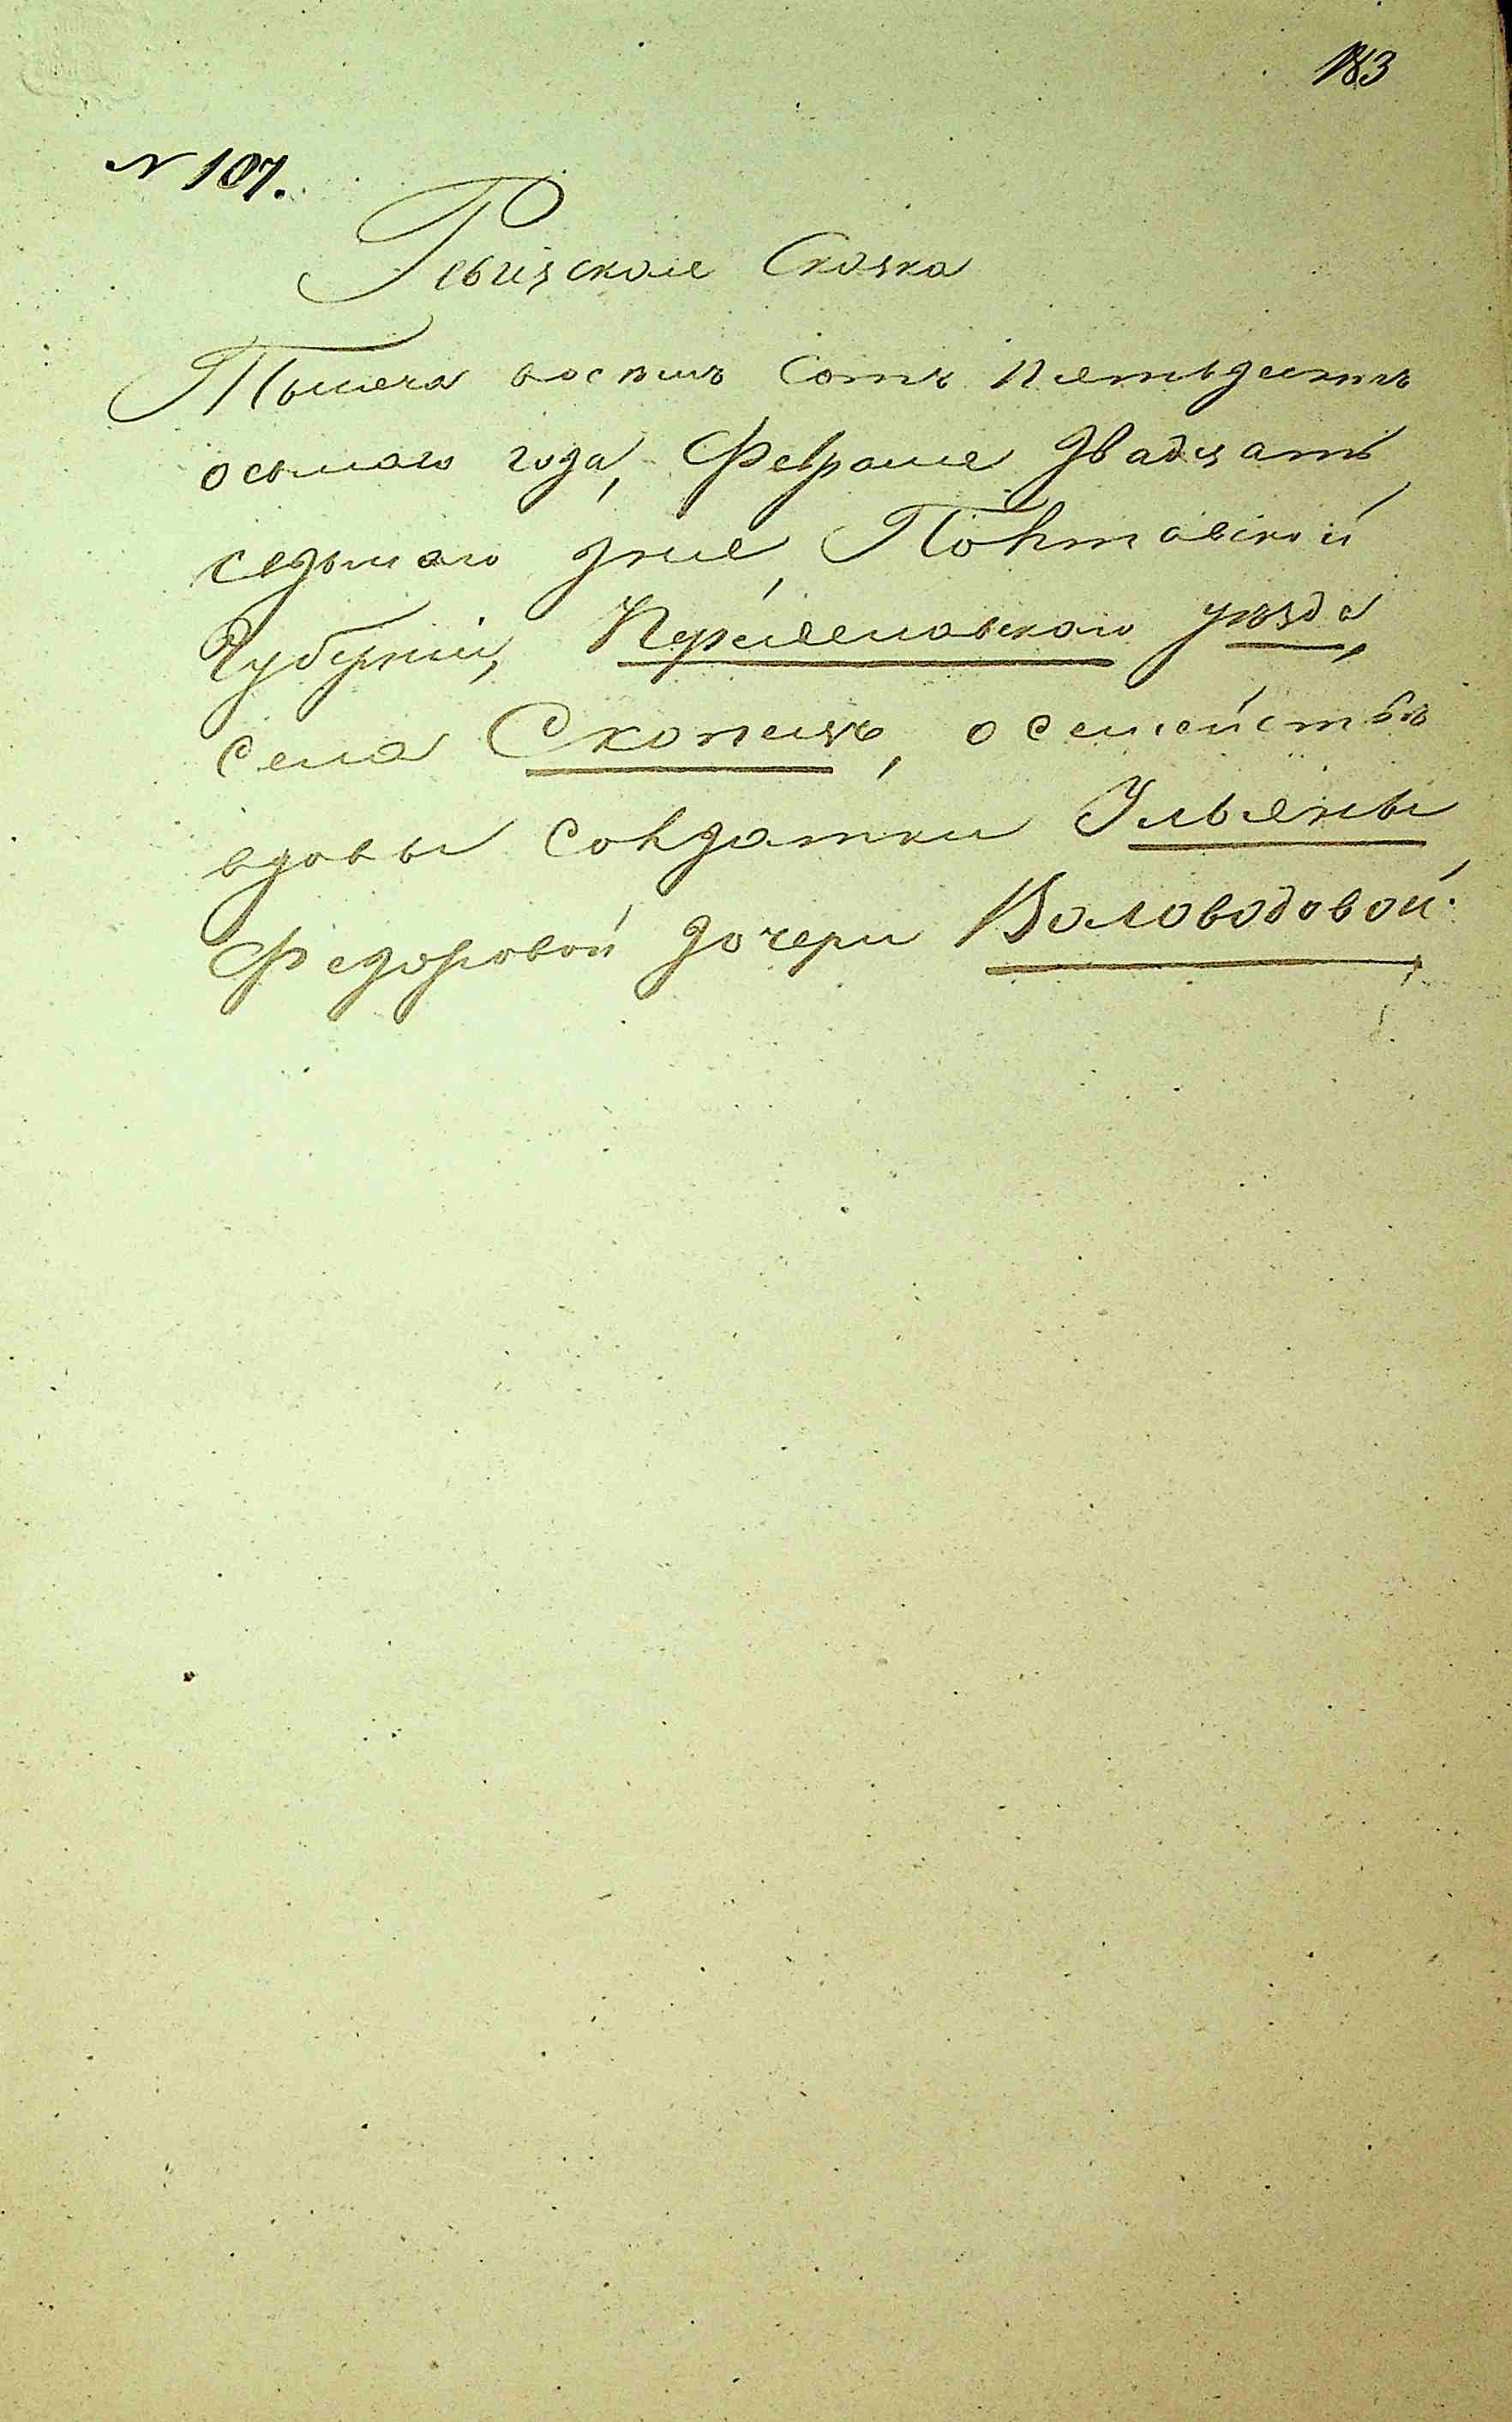 183
N 107.
Ревизская Сказка
Тысяча восемь сотъ пятьдесятъ
осьмаго года, Февраля двадцать
седьмаго дня, Полтавской
Губерніи, Переяславскаго уѣзда,
села Скопецъ, о семействѣ
вдовы солдатки Ульяны
Федоровой дочери Воловодовой.